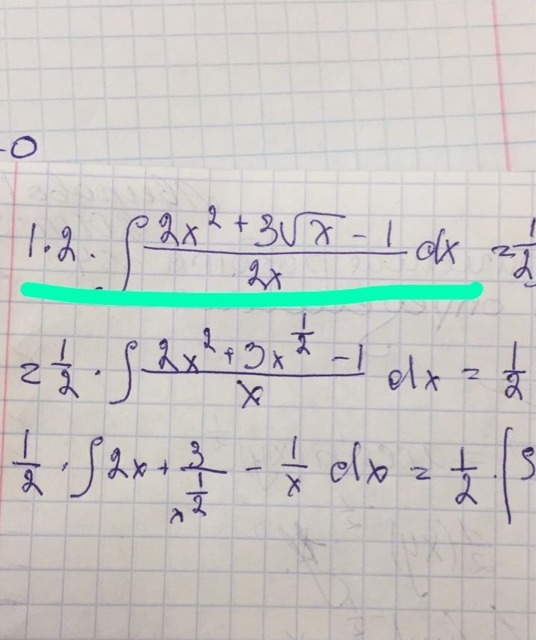 -0
1.2. ∫ (2x² + 3√x - 1)/(2x) dx = 1/2
= 1/2 · ∫ (2x² + 3x^(1/2) - 1)/x dx = 1/2
1/2 · ∫ 2x + 3/x^(1/2) - 1/x dx = 1/2 · (